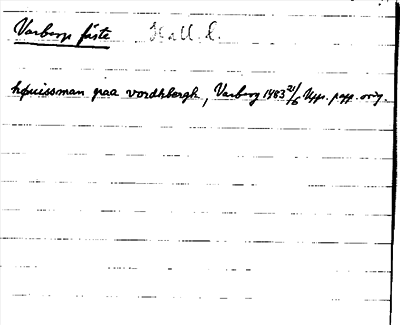 Varbergs fäste Hall. l.
høuissman paa vordhbergh, Varberg 1483 21/6 Upps. papp. orig.